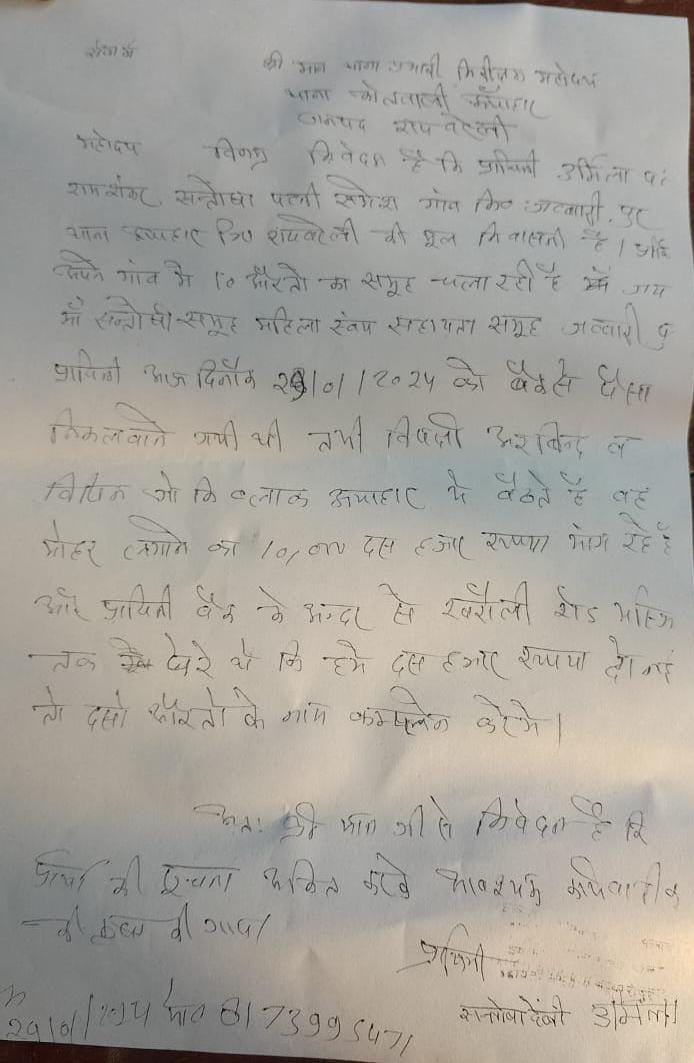 सेवा में
श्री मान थाना प्रभारी निरीक्षक महोदय
थाना कोतवाली ऊँचाहार
जनपद रायबरेली
महोदय विनम्र निवेदन है कि प्रार्थिनी उर्मिला प०
रामशंकर, सन्तोषा पत्नी गांव
थाना ऊँचाहार जि० रायबरेली की मूल निवासनी है। और
अपने गांव मे 10 औरतो का समूह चला रही है जय
माँ सन्तोषी समूह महिला स्वंय सहायता समूह
प्रार्थिनी आज दिनाँक 29/01/2024 को बैंक से पैसा
निकलवाने गयी थी तभी विपक्षी अरविन्द व
विपिन जो कि ब्लाक ऊचाहार मे बैठते है वह
मोहर लगाने का दस हजार रूपया मांग रहे है
और प्रार्थिनी बैंक के अन्दर से रोड
तक घेरे थे कि हमे दस हजार रूपया दो नही
तो दसो औरतो के नाम कम्पलेन करेगे।
अतः श्री मान जी से निवेदन है कि
प्रार्थी की सूचना अंकित करके आवश्यक कार्यवाही क
की कृपा की जाय।
प्रार्थिनी
सन्तोषा देवी उर्मिला
29/01/2024 मो० 8173995471